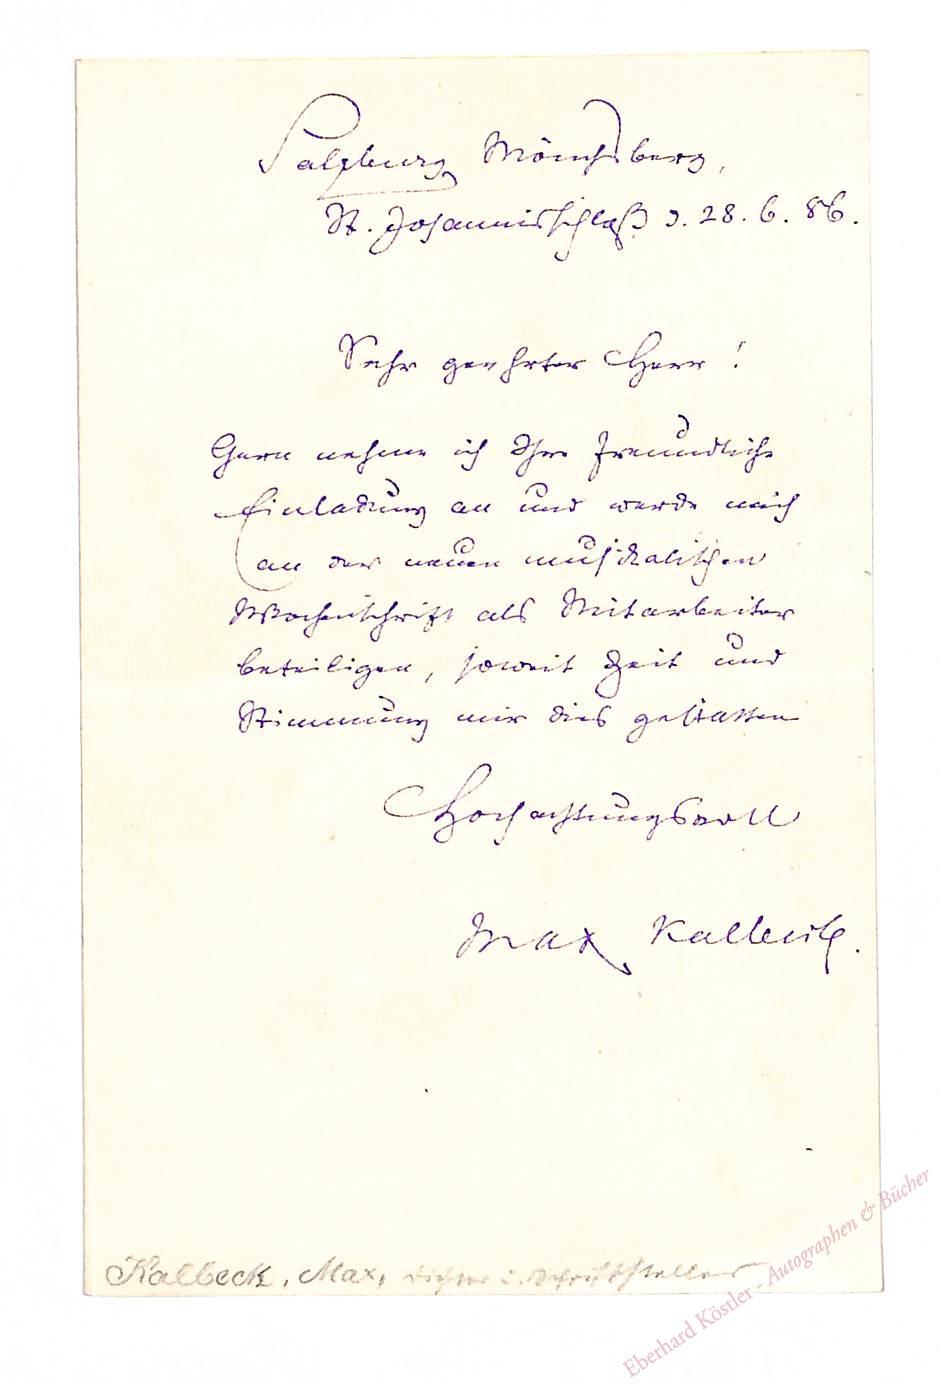 Salzburg, Mönchsberg,
St. Johannisschloß d. 28. 6. 86.
Sehr geehrter Herr!
Gern nehme ich Ihre freundliche
Einladung an und werde mich
an der neuen musikalischen
Wochenschrift als Mitarbeiter
beteiligen, soweit Zeit und
Stimmung mir dies gestatten
Hochachtungsvoll
Max Kalbeck.
Kalbeck, Max, Dichter u. Schriftsteller
Eberhard Köstler - Autographen & Bücher